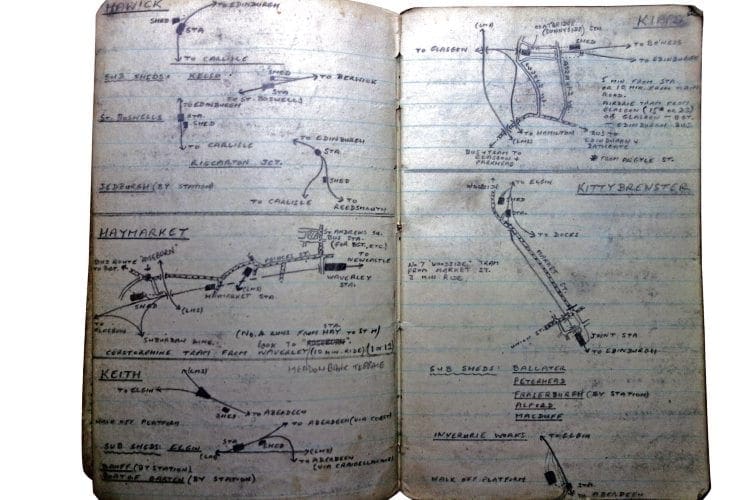 HAWICK
TO EDINBURGH
SHED
STA
TO CARLISLE
SUB SHEDS: KELSO:
SHED
TO BERWICK
STA
TO ST. BOSWELLS
TO EDINBURGH
ST. BOSWELLS
STA
SHED
TO CARLISLE
RICCARTON JCT.
TO EDINBURGH
STA.
SHED
JEDBURGH (BY STATION)
TO CARLISLE
TO REEDSMOUTH
HAYMARKET
ST ANDREWS SQ.
BUS STA.
(FOR BGT, ETC)
BUS ROUTE "ROSEBURN"
TO BGT.
PRINCES ST.
TO NEWCASTLE
WAVERLEY
STA.
SHED
(LMS)
HAYMARKET STA.
(LMS)
TO
GLASGOW
SUBURBAN LINE.
STA.
(NO. 4 RUNS FROM HAY TO ST M)
CORSTORPHINE TRAM FROM WAVERLEY (10 MIN. RIDE) (1 OR 12)
KEITH
MEADOWBANK TERRACE
(LMS)
TO ELGIN
SHED
TO ABERDEEN
WALK OFF PLATFORM
TO ABERDEEN (VIA COAST)
SUB SHEDS: ELGIN
STA
SHED
(LMS)
TO ABERDEEN
(VIA CRAIGELLACHIE)
BANFF (BY STATION)
BOAT OF GARTEN (BY STATION)
KIPPS
(LMS)
COATBRIDGE
(SUNNYSIDE) STA.
TO GLASGOW
SHED
TO BO'NESS
TO EDINBURGH
5 MIN. FROM STA
OR 10 MIN. FROM MAIN
ROAD.
AIRDRIE TRAM FROM
GLASGOW (15* OR 23)
OR GLASGOW - BGT -
EDINBURGH BUS
TO HAMILTON
(LMS)
BUS + TRAM TO
GLASGOW +
PARKHEAD
BUS TO
EDINBURGH +
BATHGATE
* FROM ARGYLE ST.
KITTYBREWSTER
WOODSIDE
TO ELGIN
SHED
STA
TO DOCKS
NO 7 "WOODSIDE" TRAM
FROM MARKET ST.
2 MIN RIDE.
MARKET ST.
UNION ST.
JOINT STA
TO EDINBURGH
SUB SHEDS: BALLATER
PETERHEAD
FRASERBURGH (BY STATION)
ALFORD
MACDUFF
INVERURIE WORKS
TO ELGIN
WALK OFF PLATFORM
STA.
TO ABERDEEN